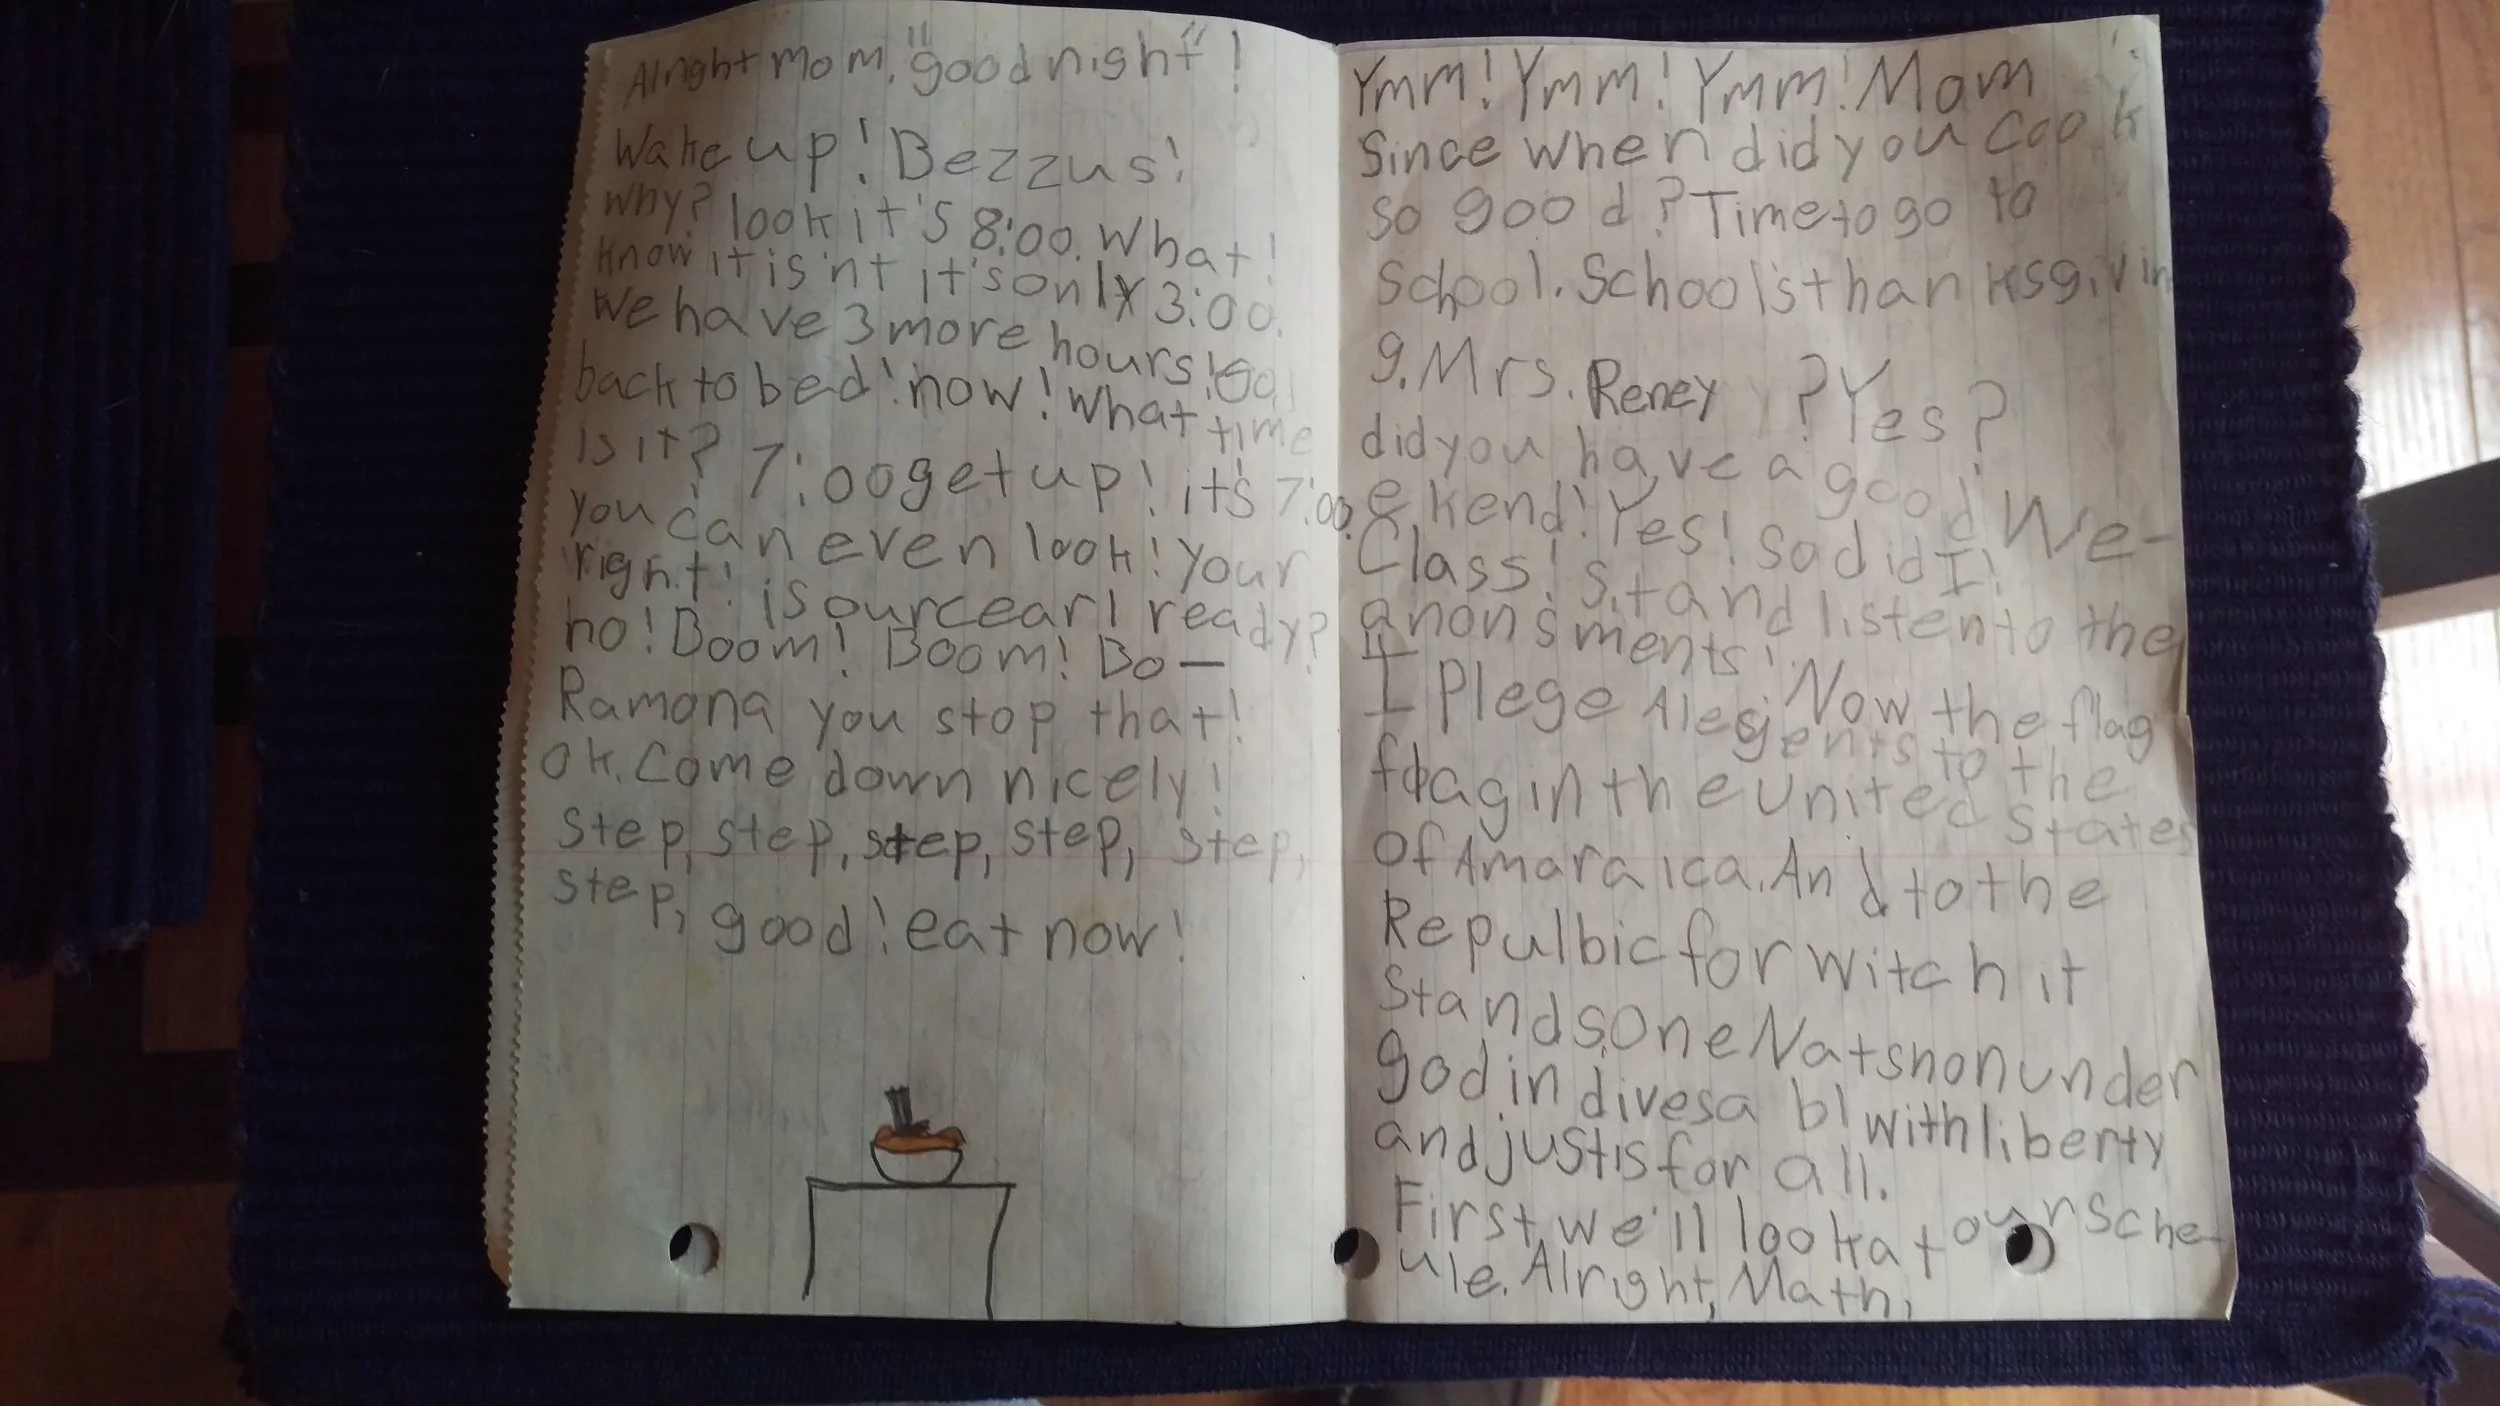 Alright mom, "good night"!
Wake up! Bezzus!
Why? look it's 8:00. What!
know it is'nt it's only 3:00.
We have 3 more hours! Go!
back to bed! now! What time
is it? 7:00 get up! it's 7:00.
you can even look! Your
right! is our cearl ready?
ho! Boom! Boom! Bo—
Ramona you stop that!
ok. Come down nicely!
Step, step, step, step, step,
step, good! eat now!
Ymm! Ymm! Ymm! Mom
Since when did you cook
so good? Time to go to
School. School's thanksgivin
g. Mrs. Reney? Yes?
did you have a good We-
ekend! Yes! So did I!
Class! Sit and listen to the
anonsments! Now the flag
I Plege Alegents to the
flag in the united states
of Amaraica. And to the
Repulbic for witch it
Stands, One Natshon under
god in divesa bl with liberty
and justis for all.
First, we'll look at our Sche-
ule. Alright, Math,